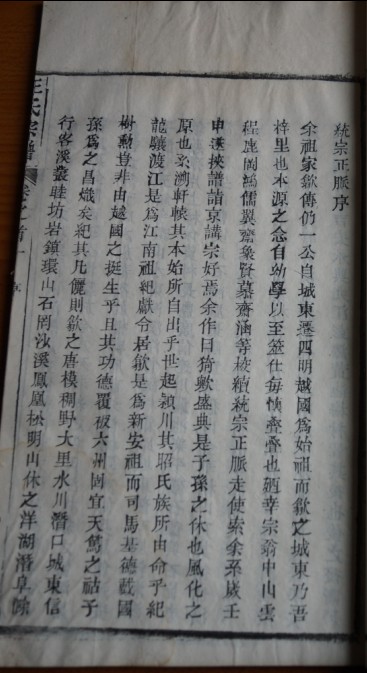 統宗正脈序
余祖家歙傳仍一公自城東遷四明越國為始祖而歙之城東乃吾
梓里也本源之念自幼學以至筮仕每懊齊疊也廼幸宗翁中山雲
程鹿岡鴻儒翼齋象賢慕齋涵等校續統宗正脈走使索余序歲壬
申還挾譜詣京講宗好焉余作曰猗歟盛典是子孫之休也風化之
原也系溯軒轅其本始所自出乎世起潁川其昭氏族所由命乎紀
龍驤渡江是為江南祖紀獻令居歙是為新安祖而司馬基德戴國
樹勲豈非由越國之挺生乎且其功德覆被六州固宜天篤之祜子
孫為之昌熾矣紀其凡儷則歙之唐模稠野大里水川潛口城東信
行客溪叢睦坊岩鎮環山石岡沙溪鳳凰松明山休之洋湖潛阜餘
王氏宗譜
卷之首